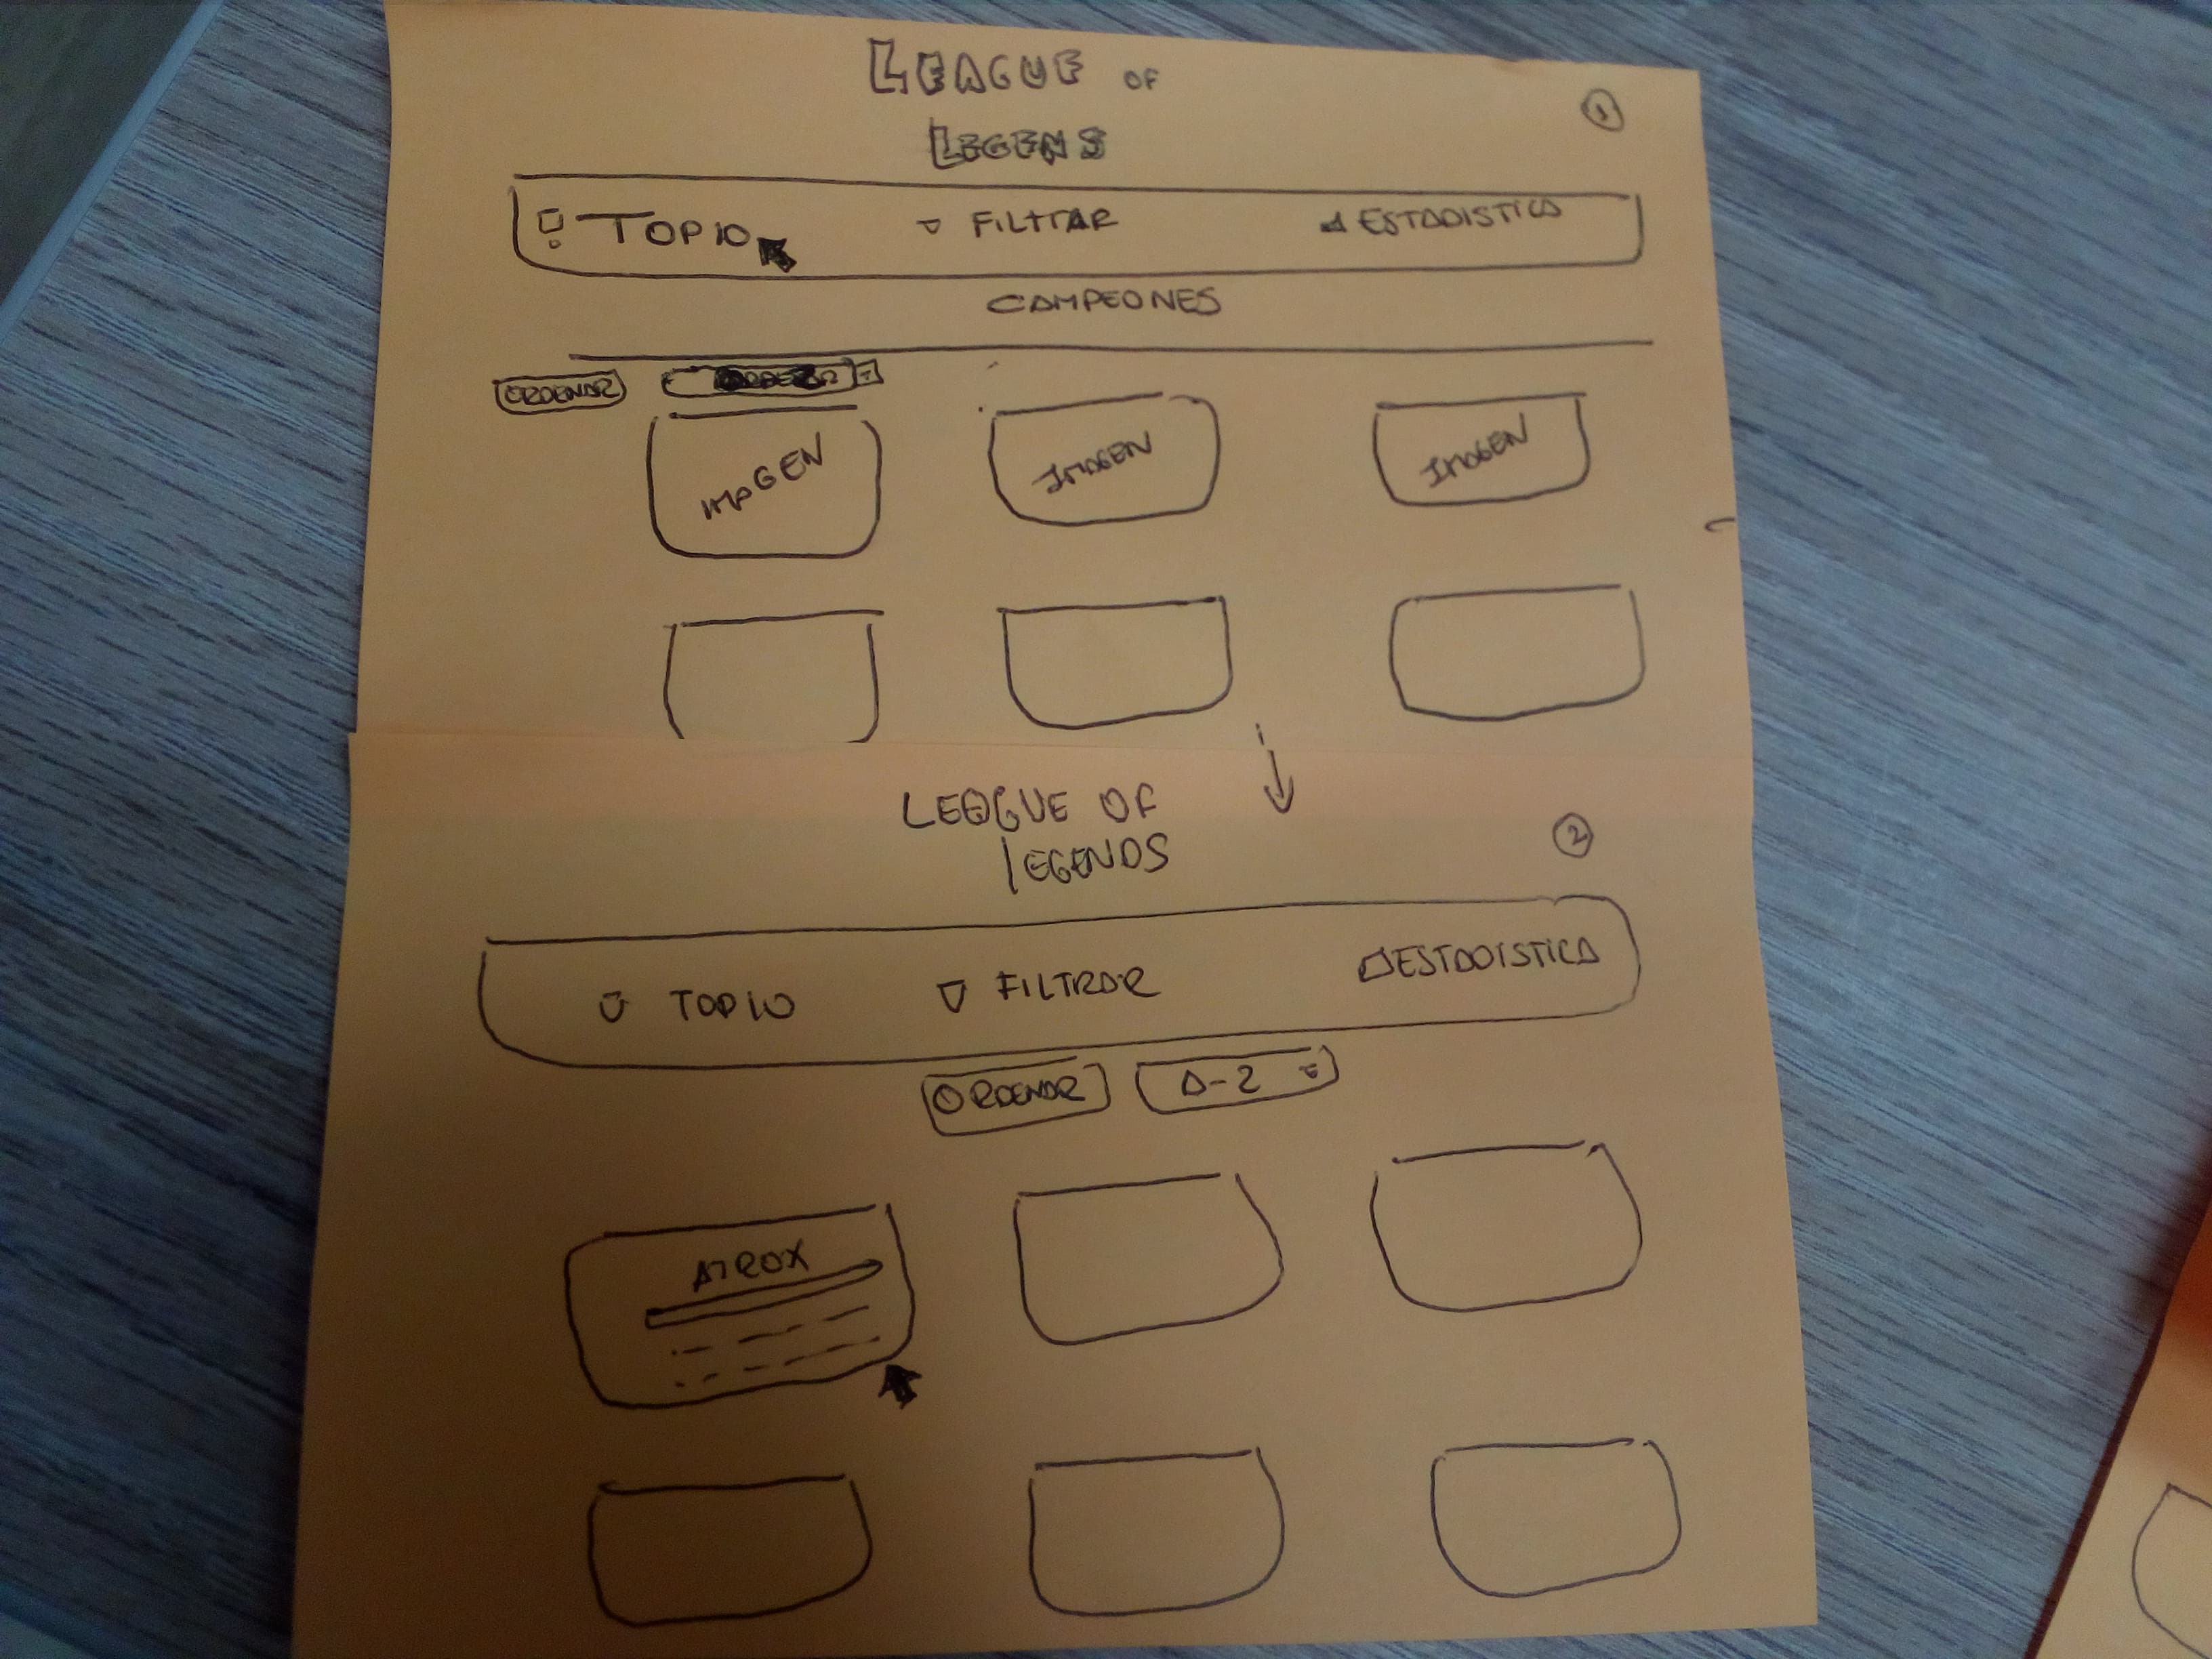 LEAGUE OF
LEGENS
1
TOP 10 FILTTAR ESTADISTICA
CAMPEONES
ORDENAR
IMAGEN IMAGEN IMAGEN
LEAGUE OF
LEGENDS
2
TOP 10 FILTRAR ESTADISTICA
ORDENAR A-Z
ATROX